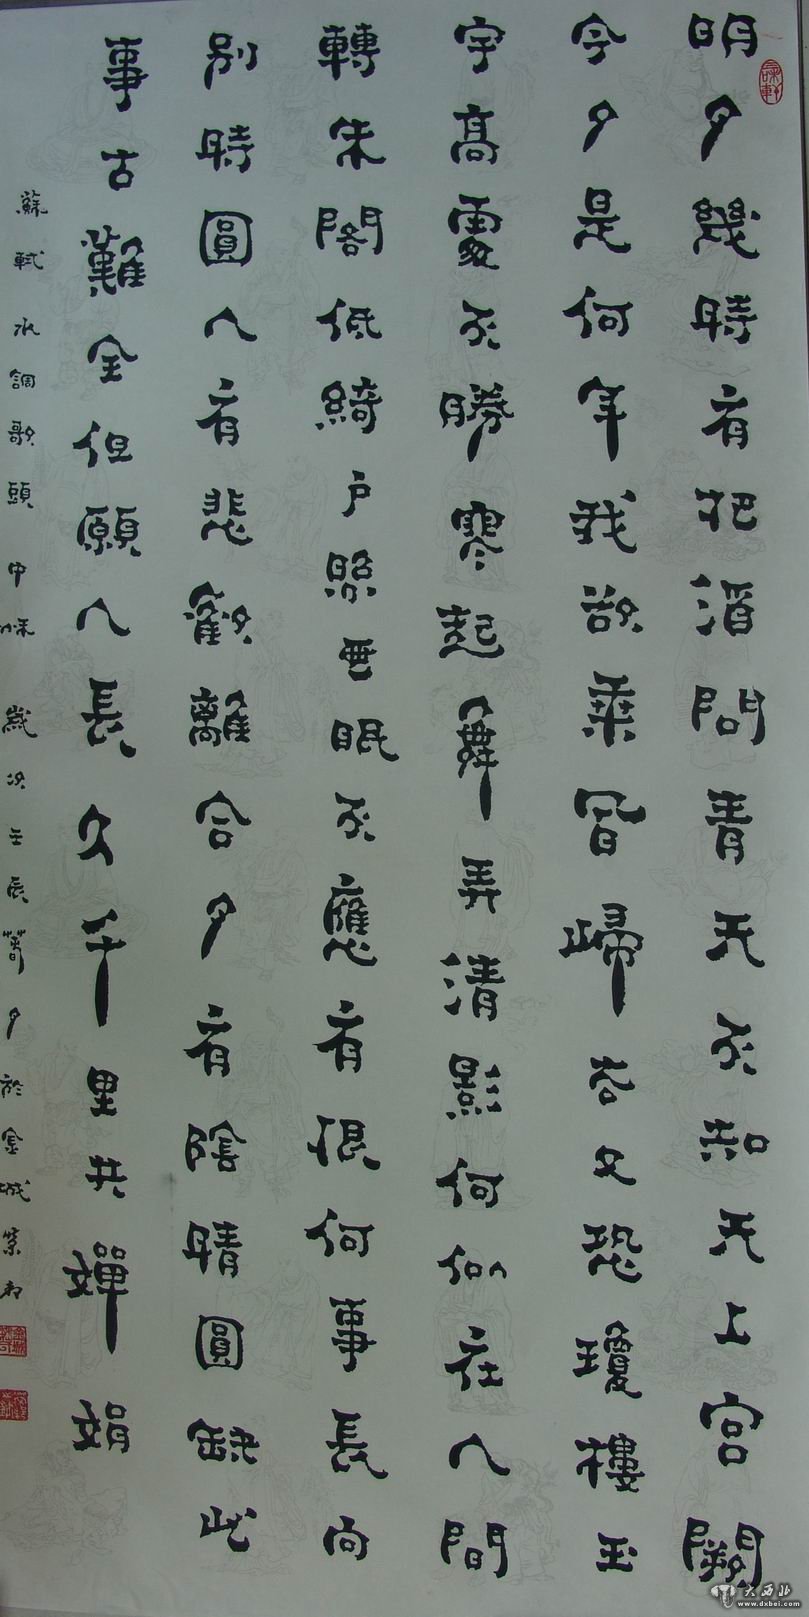 明月幾時有把酒問青天不知天上宮闕
今夕是何年我欲乘風歸去又恐瓊樓玉
宇高處不勝寒起舞弄清影何似在人間
轉朱閣低綺戶照無眠不應有恨何事長向
別時圓人有悲歡離合月有陰晴圓缺此
事古難全但願人長久千里共嬋娟
蘇軾水調歌頭中秋 歲次壬辰萅月於金城
大西北
www.dxbei.com